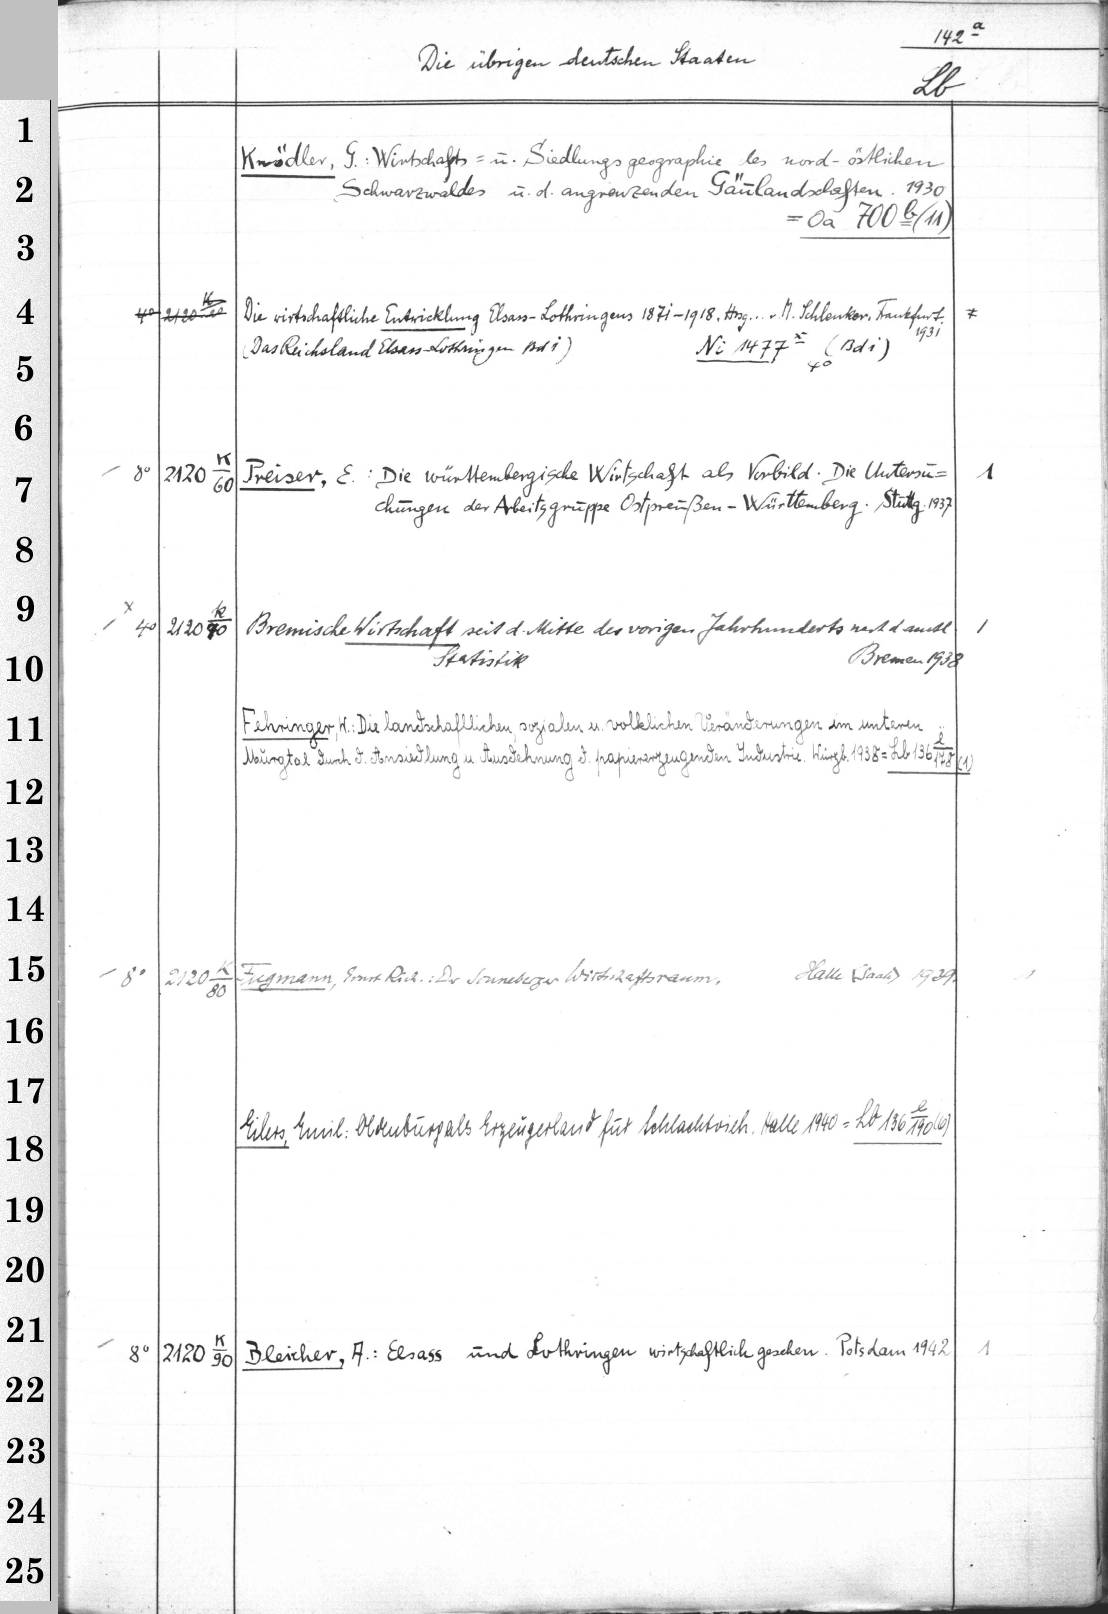 142 a
Die übrigen deutschen Staaten
Lb
1
Knödler, G.: Wirtschafts = u. Siedlungsgeographie des nord-östlichen
2
Schwarzwaldes u. d. angrenzenden Gäulandschaften. 1930
= Oa 700 b (11)
3
4
4° 2120 K Die wirtschaftliche Entwicklung Elsass-Lothringens 1871-1918. Hrsg... v. M. Schlenker. Frankfurt.
1931
(Das Reichsland Elsass-Lothringen Bd i) Ni 1477 x 4° (Bd i)
5
6
8° 2120 K/60 Preiser, E.: Die württembergische Wirtschaft als Vorbild. Die Untersu= 1
7
chungen der Arbeitsgruppe Ostpreußen - Württemberg. Stuttg. 1937
8
9
x 4° 2120 K/70 Bremische Wirtschaft seit d. Mitte des vorigen Jahrhunderts nach d. amtl. 1
10
Statistik Bremen 1938
11
Fehringer, K.: Die landschaftlichen, sozialen u. volklichen Veränderungen im unteren
Murgtal durch d. Ansiedlung u. Ausdehnung d. papiererzeugenden Industrie. Würzb. 1938 = Lb 136 l/178 (1)
12
13
14
15
8° 2120 K/80 Fugmann, Ernst Rich.: Der Sonneberger Wirtschaftsraum. Halle (Saale) 1939. 1
16
17
Eilers, Emil: Oldenburg als Erzeugerland für Schlachtvieh. Halle 1940 = Lb 136 l/190 (6)
18
19
20
21
8° 2120 K/90 Bleicher, A.: Elsass und Lothringen wirtschaftlich gesehen. Potsdam 1942 1
22
23
24
25